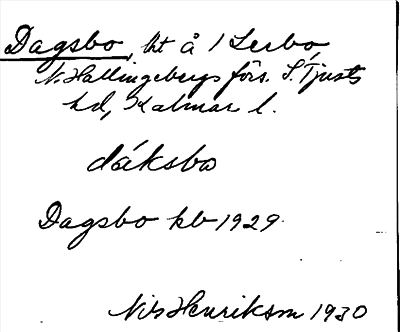 Dagsbo, lht å 1 Lerbo,
N. Hallingebergs förs. S. Tjusts
hd, Kalmar l.
dáksbo
Dagsbo kb 1929.
Nils Henrikson 1930